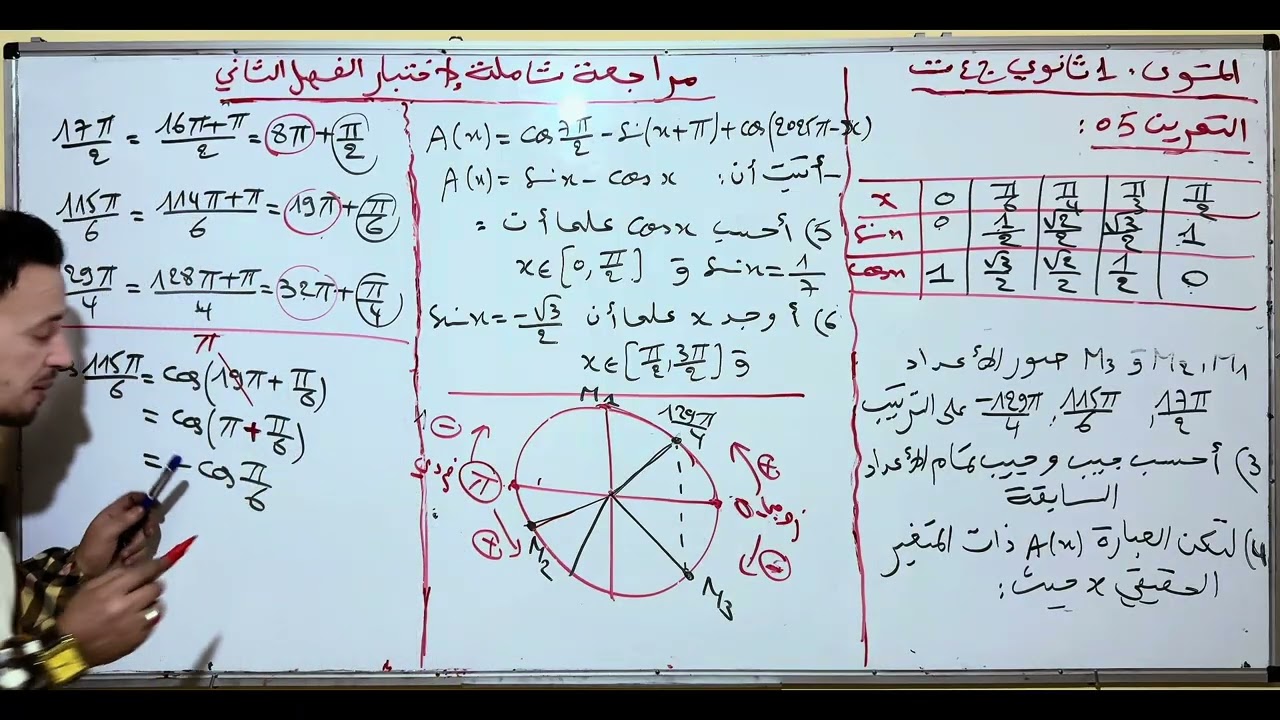 المستوى: 1 ثانوي ج م ع ت
مراجعة شاملة لاختبار الفصل الثاني
التمرين 05:
x 0 π/6 π/4 π/3 π/2
sinx 0 1/2 √2/2 √3/2 1
cosx 1 √3/2 √2/2 1/2 0
M1, M2 و M3 صور الأعداد
17π/2, 115π/6, -129π/4 على الترتيب
3) أحسب جيب وجيب تمام الأعداد
السابقة
4) لتكن العبارة A(x) ذات المتغير
الحقيقي x حيث:
A(x) = cos 7π/2 - sin(x+π) + cos(2025π-x)
- أثبت أن: A(x) = sinx - cosx
5) أحسب cosx علما أن:
sinx = 1/7 و x∈[0, π/2]
6) أوجد x علما أن sinx = -√3/2
و x∈[π/2, 3π/2]
M1
129π/4
⊖
فردي π
⊕
0 زوجي
⊕
⊖
M2
M3
17π/2 = 16π+π/2 = 8π + π/2
115π/6 = 114π+π/6 = 19π + π/6
29π/4 = 128π+π/4 = 32π + π/4
π
115π/6 = cos(19π + π/6)
= cos(π + π/6)
= - cos π/6